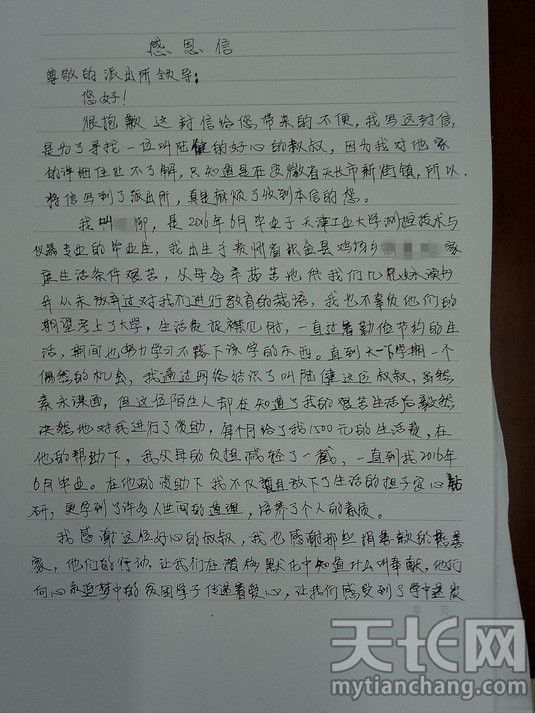 感恩信
尊敬的派出所领导：
您好！
很抱歉这封信给您带来的不便，我写这封信，
是为了寻找一位叫陆健的好心的叔叔，因为我对他家
的详细住址不了解，只知道是在安徽省天长市新街镇，所以
将信写到了派出所，真是麻烦了收到本信的您。
我叫 柳，是2016年6月毕业于天津工业大学测控技术与
仪器专业的毕业生，我出生于贵州省织金县鸡场乡 家
庭生活条件艰苦，父母含辛茹苦地供我们几兄妹读书
并从未放弃过对我们进行教育的栽培，我也不辜负他们的
期望考上了大学，生活费捉襟见肘，一直过着勤俭节约的生
活，期间也努力学习不落下该学的东西。直到大一下学期一个
偶然的机会，我通过网络结识了叫陆健这位叔叔，虽然
素未谋面，但这位陌生人却在知道了我的艰苦生活后毅然
决然地对我进行了资助，每个月给了我1500元的生活费，在
他的帮助下，我父母的负担减轻了一截，一直到我2016年
6月毕业。在他的资助下我不仅暂且放下了生活的担子安心钻
研，更学到了许多人世间的道理，培养了个人的素质。
我感谢这位好心的叔叔，我也感谢那些捐善款的慈善
家，他们的行动，让我们在潜移默化中知道什么叫奉献，他们
向心系追梦中的贫困学子传递着爱心，让我们感受到了
天长网
mytianchang.com